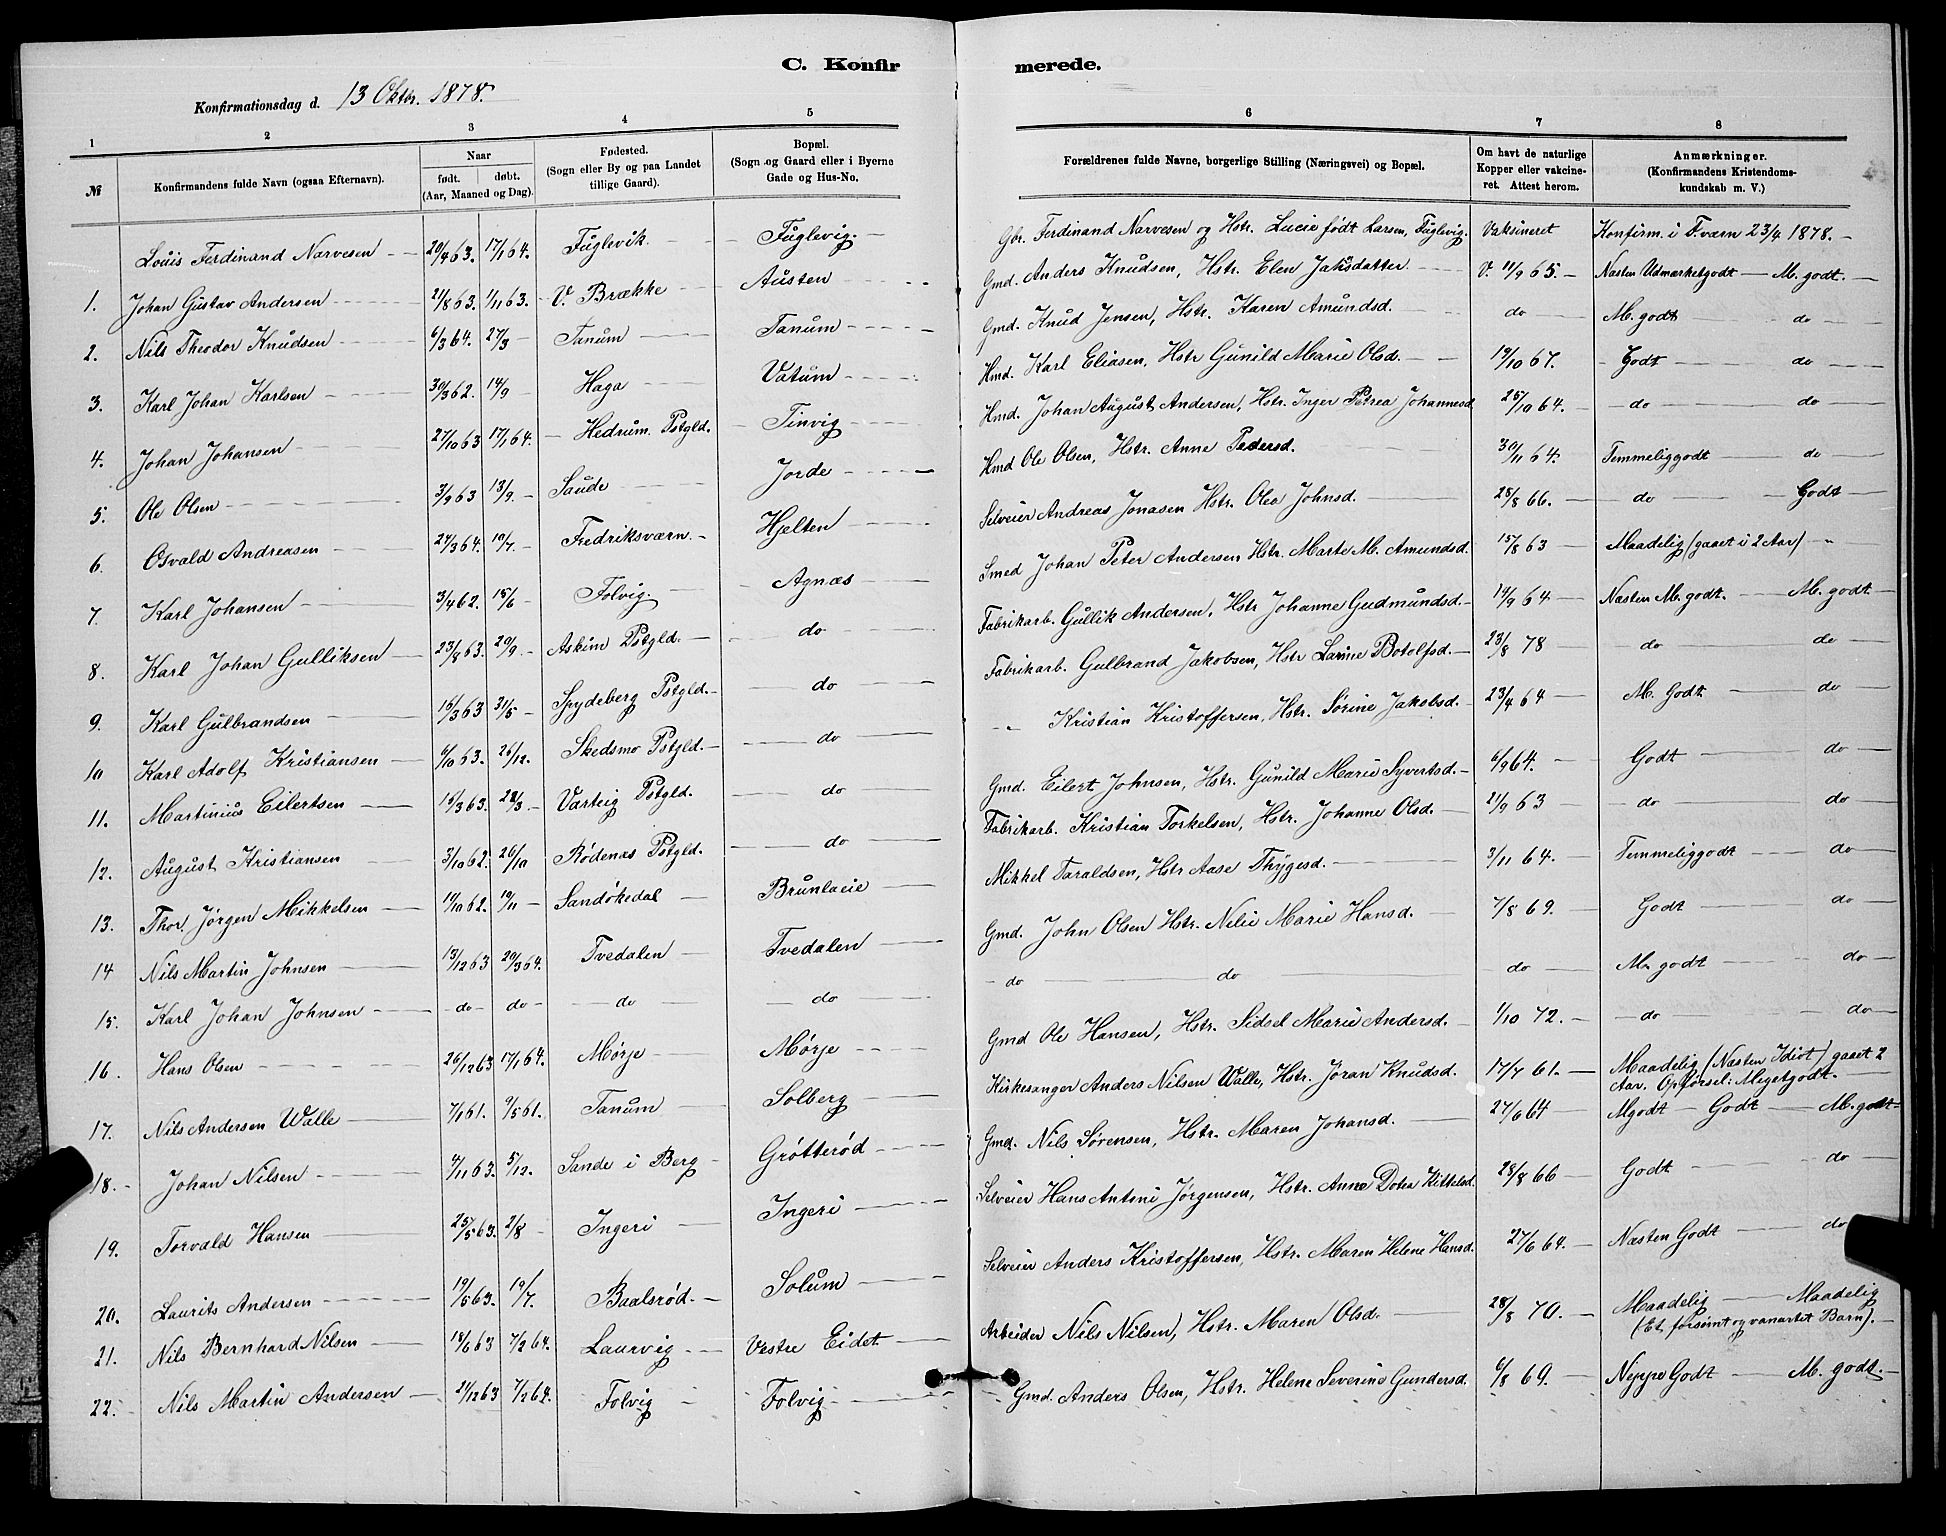 C. Konfirmerede.
Konfirmationsdag d. 13 Oktbr. 1878.
1 2 3 4 5 6 7 8
№ Konfirmandens fulde Navn (ogsaa Efternavn). Naar født. døbt. (Aar, Maaned og Dag). Fødested. (Sogn eller By og paa Landet tillige Gaard). Bopæl. (Sogn og Gaard eller i Byerne Gade og Hus-No. Forældrenes fulde Navne, borgerlige Stilling (Næringsvei) og Bopæl. Om havt de naturlige Kopper eller vakcineret. Attest herom. Anmærkninger. (Konfirmandens Kristendomskundskab m. V.)
Louis Ferdinand Narvesen 20/4 63. 17/1 64. Fuglevik. Fuglevig. Gbr. Ferdinand Narvesen og Hstr. Lucie født Larsen, Fuglevig. Vaksineret Konfirm. i F.værn 23/4 1878.
1. Johan Gustav Andersen 21/8 63. 1/11 63. V. Brække Austen Gmd. Anders Knudsen, Hstr. Elen Jaksdatter V. 11/9 65. Næsten Udmærketgodt M. godt.
2. Nils Theodor Knudsen 6/3 64. 27/3 Tanum Tanum Gmd. Knud Jensen, Hstr. Karen Amundsd. do M. godt do
3. Karl Johan Karlsen 30/3 62. 14/9 Haga Vatum Hmd. Karl Eliasen, Hstr Gunild Marie Olsd. 19/10 67. Godt do
4. Johan Johansen 27/10 63 17/1 64. Hedrum. Pstgld. Tinvig Hmd. Johan August Andersen, Hstr. Inger Petrea Johannesd 25/10 64. do do
5. Ole Olsen 3/9 63 13/9. Saude Jorde Hmd Ole Olsen, Hstr. Anne Pedersd. 30/11 64. Temmeliggodt do
6. Osvald Andreasen 24/3 64. 10/7. Fredriksværn. Hjelten Selveier Andreas Jonasen Hstr. Olea Johnsd. 28/8 66. do Godt
7. Karl Johansen 3/4 62. 15/6 Folvig. Agnæs Smed Johan Peter Andersen Hstr. Marte M. Amundsd. 15/8 63 Maadelig (gaaet i 2 Aar) "
8. Karl Johan Gulliksen 23/8 63. 20/9. Askim Pstgld. do Fabrikarb. Gullik Andersen, Hstr Johanne Gudmundsd. 14/9 64 Næsten M. godt. M. godt
9. Karl Gulbrandsen 16/3 63 31/5 Spydeberg Pstgld. do Fabrikarb. Gulbrand Jakobsen, Hstr Larine Botolfsd. 23/8 78 do do
10 Karl Adolf Kristiansen 6/10 63. 26/12. Skedsmo Pstgld. do " Kristian Kristoffersen, Hstr. Sørine Jakobsd. 23/4 64 M. Godt do
11. Martinius Eilertsen 15/3 63. 28/3 Varteig Pstgld. do Gmd. Eilert Johnsen, Hstr. Gunild Marie Syvertsd. 6/9 64. Godt do
12. August Kristiansen 3/10 62. 26/10 Rødenæs Pstgld. do Fabrikarb. Kristian Torkelsen, Hstr. Johanne Olsd. 21/9 63 do do
13. Thor Jørgen Mikkelsen 14/10 62. 19/11 Sandøkedal Brunlaeie Mikkel Taraldsen, Hstr Aase Thygesd. 3/11 64. Temmeliggodt do
14 Nils Martin Johnsen 13/12 63 20/3 64. Tvedalen Tvedalen Gmd. John Olsen Hstr. Nilie Marie Hansd. 7/8 69. Godt do
15. Karl Johan Johnsen do do do do do do do M. godt do
16. Hans Olsen 26/12 63 17/1 64. Mørje Mørje Gmd Ole Hansen, Hstr. Sidsel Marie Andersd. 1/10 72. do do
17. Nils Andersen Walle 7/1 61. 9/5 61. Tanum Solberg Kirkesanger Anders Nilsen Walle, Hstr. Jøran Knudsd. 17/7 61. Maadelig (Næsten Idiot) gaaet 2 Aar. Opførsel: Megetgodt.
18. Johan Nilsen 4/11 63. 5/12. Sande i Berg Grøtterød Gmd. Nils Sørensen, Hstr. Maren Johansd. 27/6 64 Mgodt Godt M. godt
19. Torvald Hansen 25/5 63. 2/8 Ingeri Ingeri Selveier Hans Antoni Jørgensen, Hstr. Anne Dorta Kittelsd. 28/8 66 Godt do
20. Laurits Andersen 19/5 63. 19/7. Baalsrød. Solum Selveier Anders Kristoffersen, Hstr. Maren Helene Hansd. 27/6 64. Næsten Godt do
21. Nils Bernhard Nilsen 18/6 63 7/2 64. Laurvig Vestre Eidet Arbeider Nils Nilsen, Hstr. Maren Olsd. 28/8 70. Maadelig Maadelig (Et forsømt og vanartet Barn).
22. Nils Martin Andersen 21/12 63 7/2 64. Folvig Folvig Gmd. Anders Olsen, Hstr. Helene Severine Gundersd. 6/8 69. Neppe Godt M. godt.